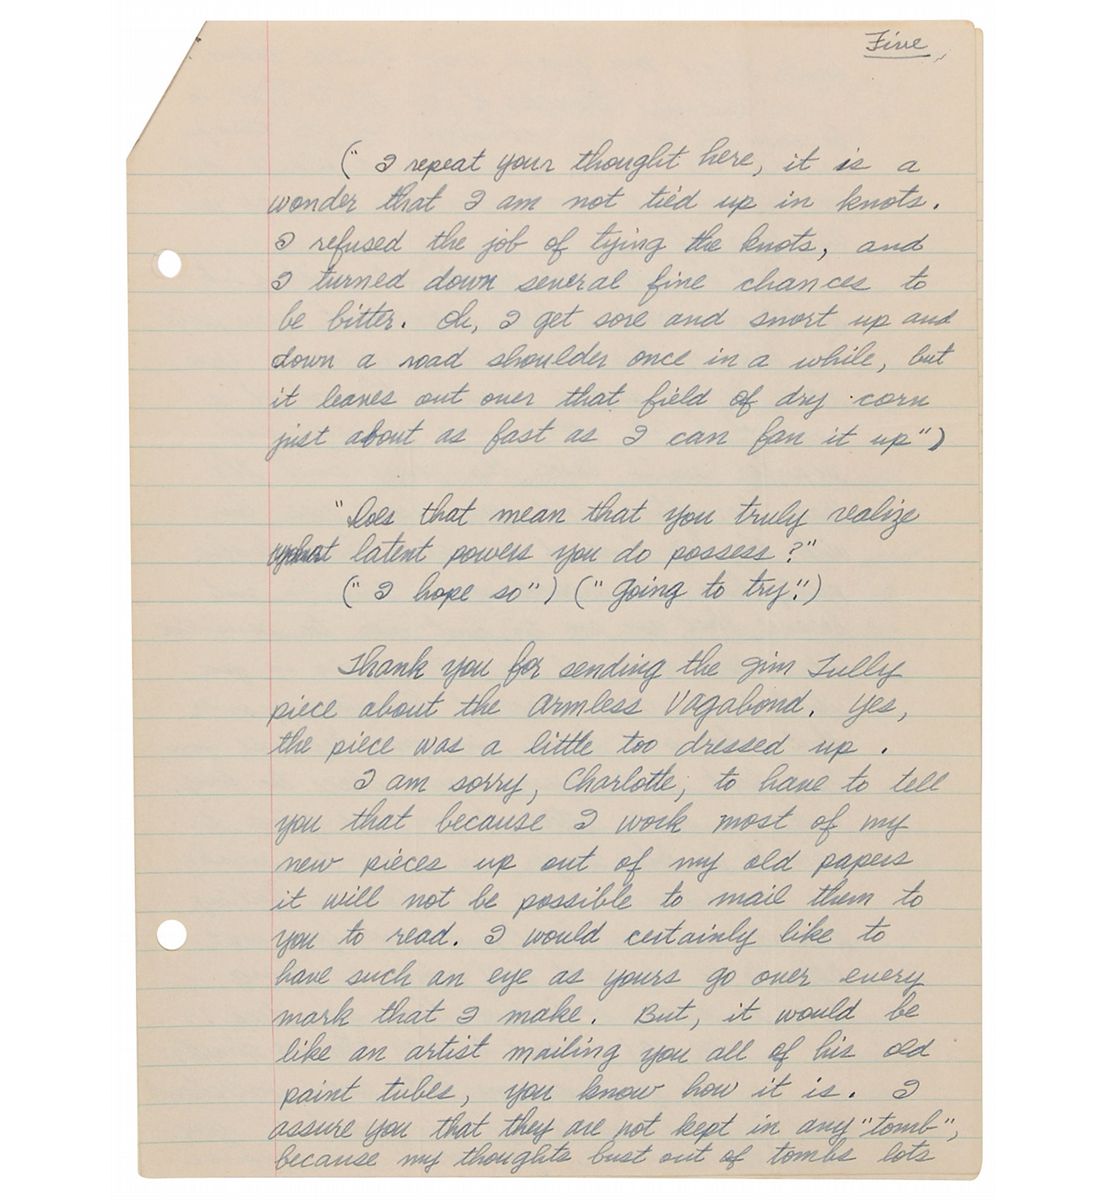 Five,
(" I repeat your thought here, it is a
wonder that I am not tied up in knots.
I refused the job of tying the knots, and
I turned down several fine chances to
be bitter. Oh, I get sore and snort up and
down a road shoulder once in a while, but
it leaves out over that field of dry corn
just about as fast as I can fan it up")
"Does that mean that you truly realize
what latent powers you do possess?"
(" I hope so") ("Going to try".)
Thank you for sending the Jim Tully
piece about the Armless Vagabond. Yes,
the piece was a little too dressed up.
I am sorry, Charlotte, to have to tell
you that because I work most of my
new pieces up out of my old papers
it will not be possible to mail them to
you to read. I would certainly like to
have such an eye as yours go over every
mark that I make. But, it would be
like an artist mailing you all of his old
paint tubes, you know how it is. I
assure you that they are not kept in any "tomb",
because my thoughts bust out of tombs lots